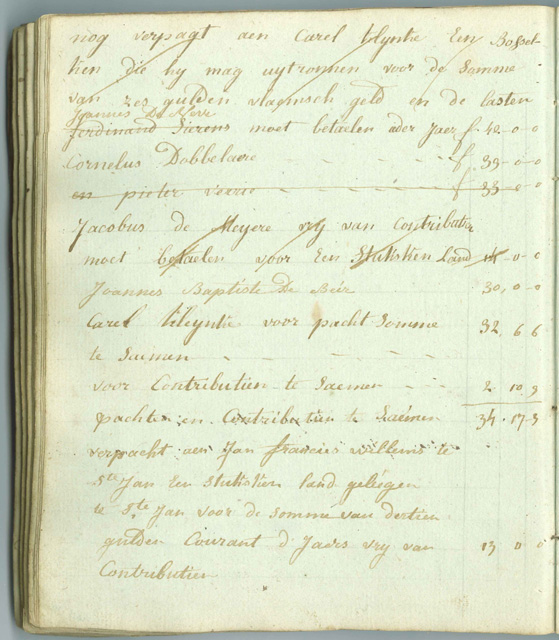 nog verpagt aen Carel Kleyntie Een Bosset-
tien die hy mag uytrounen voor de Somme
van zes gulden vlaemsch geld en de lasten
Joannes De
ferdinand Sierens moet betaelen ider Jaer f. 42-0-0
Cornelus Dobbelaere f. 39-0-0
en pieter f 33-0-0
Jacobus de Meyere vry van Contributie
moet betaelen voor Een Stukskien land 14-0-0
Joannes Baptiste De Bier 30,0-0
Carel Kleyntie voor pacht Somme 32 6 6
te Saemen
voor Contributien te Saemen 2 10 9
pachten en Contributien te Saemen 34.17-3
verpacht aen Jan francies willems te
Ste Jan Een Stukskien land gelegen
te Ste Jan voor de Somme van dertien
gulden Courant d Jaers vry van 13 0 0
Contributien